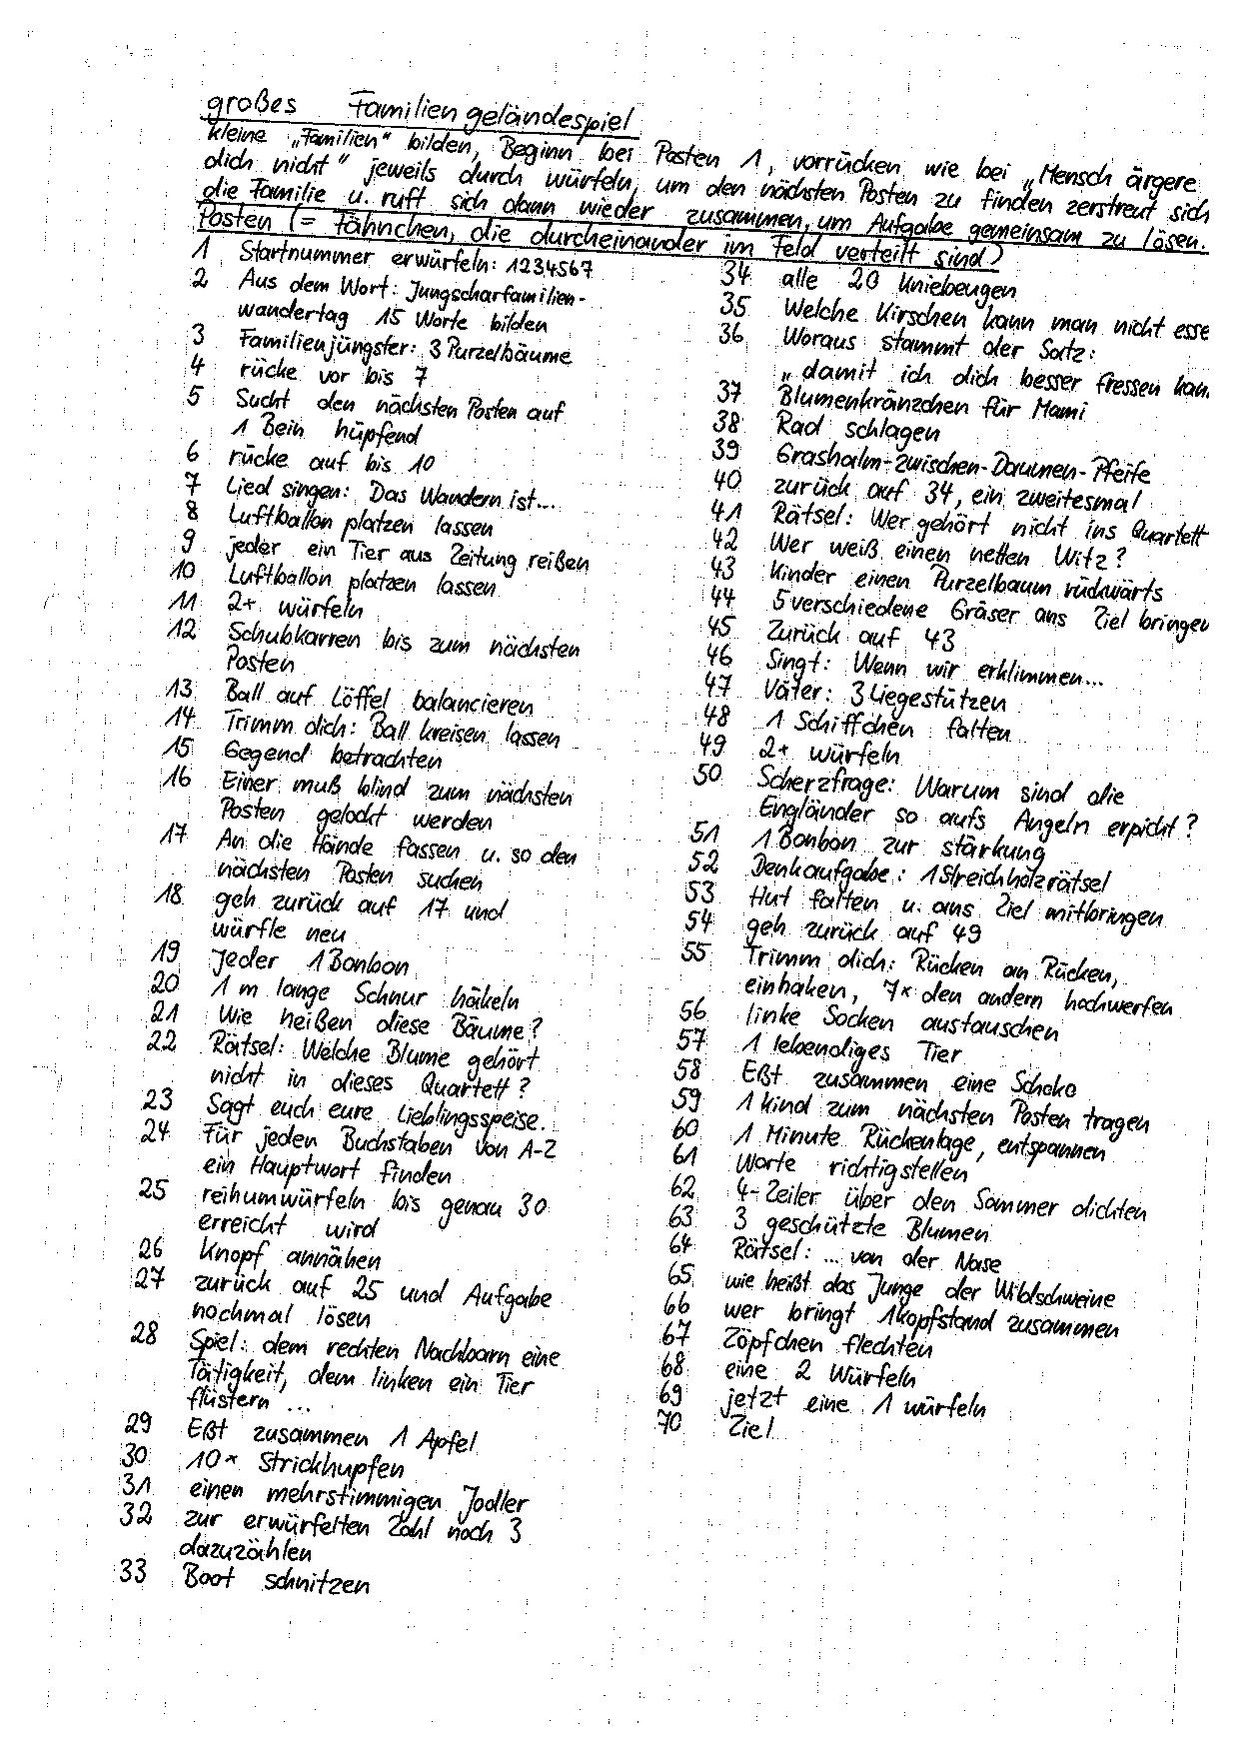 großes Familiengeländespiel
kleine „Familien“ bilden, Beginn bei Posten 1, vorrücken wie bei „Mensch ärgere
dich nicht“ jeweils durch würfeln, um den nächsten Posten zu finden zerstreut sich
die Familie u. ruft sich dann wieder zusammen, um Aufgabe gemeinsam zu lösen.
Posten (= Fähnchen, die durcheinander im Feld verteilt sind)
1 Startnummer erwürfeln: 1234567
2 Aus dem Wort: Jungscharfamilien-
wandertag 15 Worte bilden
3 Familienjüngster: 3 Purzelbäume
4 rücke vor bis 7
5 Sucht den nächsten Posten auf
1 Bein hüpfend
6 rücke auf bis 10
7 Lied singen: Das Wandern ist...
8 Luftballon platzen lassen
9 jeder ein Tier aus Zeitung reißen
10 Luftballon platzen lassen
11 2x würfeln
12 Schubkarren bis zum nächsten
Posten
13 Ball auf Löffel balancieren
14 Trimm dich: Ball kreisen lassen
15 Gegend betrachten
16 Einer muß blind zum nächsten
Posten gelockt werden
17 An die Hände fassen u. so den
nächsten Posten suchen
18 geh zurück auf 17 und
würfle neu
19 Jeder 1 Bonbon
20 1 m lange Schnur häkeln
21 Wie heißen diese Bäume?
22 Rätsel: Welche Blume gehört
nicht in dieses Quartett?
23 Sagt euch eure Lieblingsspeise.
24 Für jeden Buchstaben von A-Z
ein Hauptwort finden
25 reihumwürfeln bis genau 30
erreicht wird
26 Knopf annähen
27 zurück auf 25 und Aufgabe
nochmal lösen
28 Spiel: dem rechten Nachbarn eine
Tätigkeit, dem linken ein Tier
flüstern ...
29 Eßt zusammen 1 Apfel
30 10x Strickhupfen
31 einen mehrstimmigen Jodler
32 zur erwürfelten Zahl noch 3
dazuzählen
33 Boot schnitzen
34 alle 20 Kniebeugen
35 Welche Kirschen kann man nicht esse
36 Woraus stammt der Satz:
„damit ich dich besser fressen kan
37 Blumenkränzchen für Mami
38 Rad schlagen
39 Grashalm-zwischen-Daumen-Pfeife
40 zurück auf 34, ein zweitesmal
41 Rätsel: Wer gehört nicht ins Quartett
42 Wer weiß einen netten Witz?
43 Kinder einen Purzelbaum rückwärts
44 5 verschiedene Gräser ans Ziel bringen
45 Zurück auf 43
46 Singt: Wenn wir erklimmen...
47 Väter: 3 Liegestützen
48 1 Schiffchen falten
49 2x würfeln
50 Scherzfrage: Warum sind die
Engländer so aufs Angeln erpicht?
51 1 Bonbon zur stärkung
52 Denkaufgabe: 1 Streichholzrätsel
53 Hut falten u. ans Ziel mitbringen
54 geh zurück auf 49
55 Trimm dich: Rücken an Rücken,
einhaken, 7x den andern hochwerfen
56 linke Socken austauschen
57 1 lebendiges Tier
58 Eßt zusammen eine Schoko
59 1 Kind zum nächsten Posten tragen
60 1 Minute Rückenlage, entspannen
61 Worte richtigstellen
62 4-Zeiler über den Sommer dichten
63 3 geschützte Blumen
64 Rätsel: ... von der Nase
65 wie heißt das Junge der Wildschweine
66 wer bringt 1 Kopfstand zusammen
67 Zöpfchen flechten
68 eine 2 Würfeln
69 jetzt eine 1 würfeln
70 Ziel